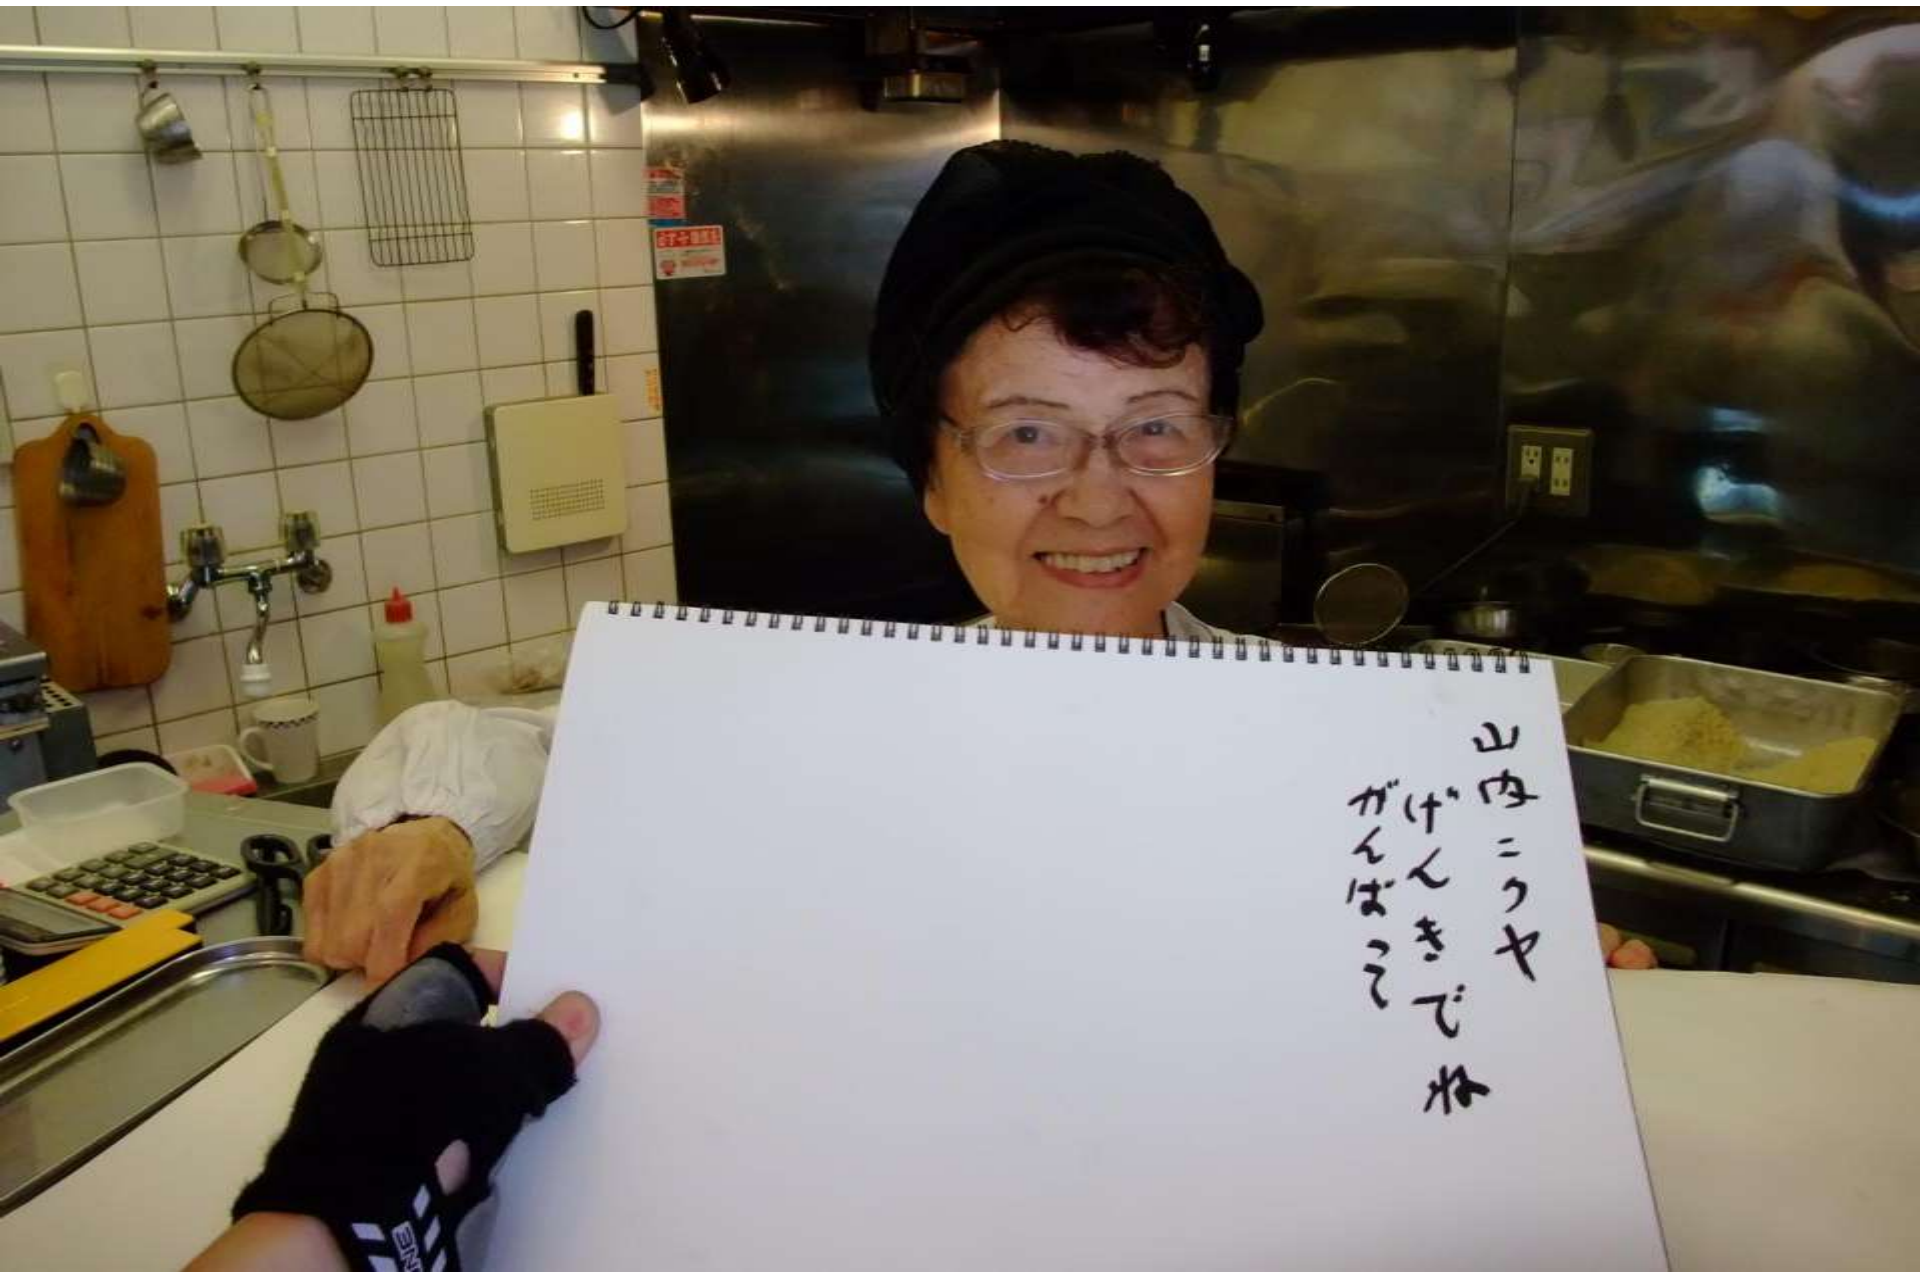 山内ニクヤ
げんきでね
がんばって